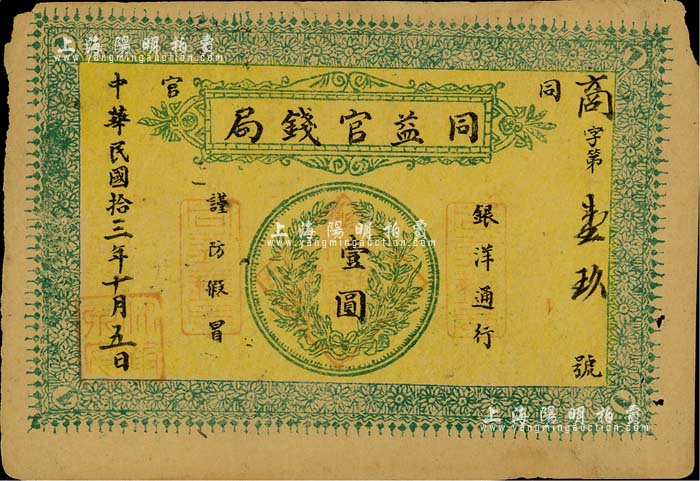 同益官錢局
同
官
商字第壹玖號
銀洋通行
壹圓
謹防假冒
中華民國拾三年十月五日
上海陽明拍賣
www.yangmingauction.com
上海陽明拍賣
www.yangmingauction.com
上海陽明拍賣
www.yangmingauction.com